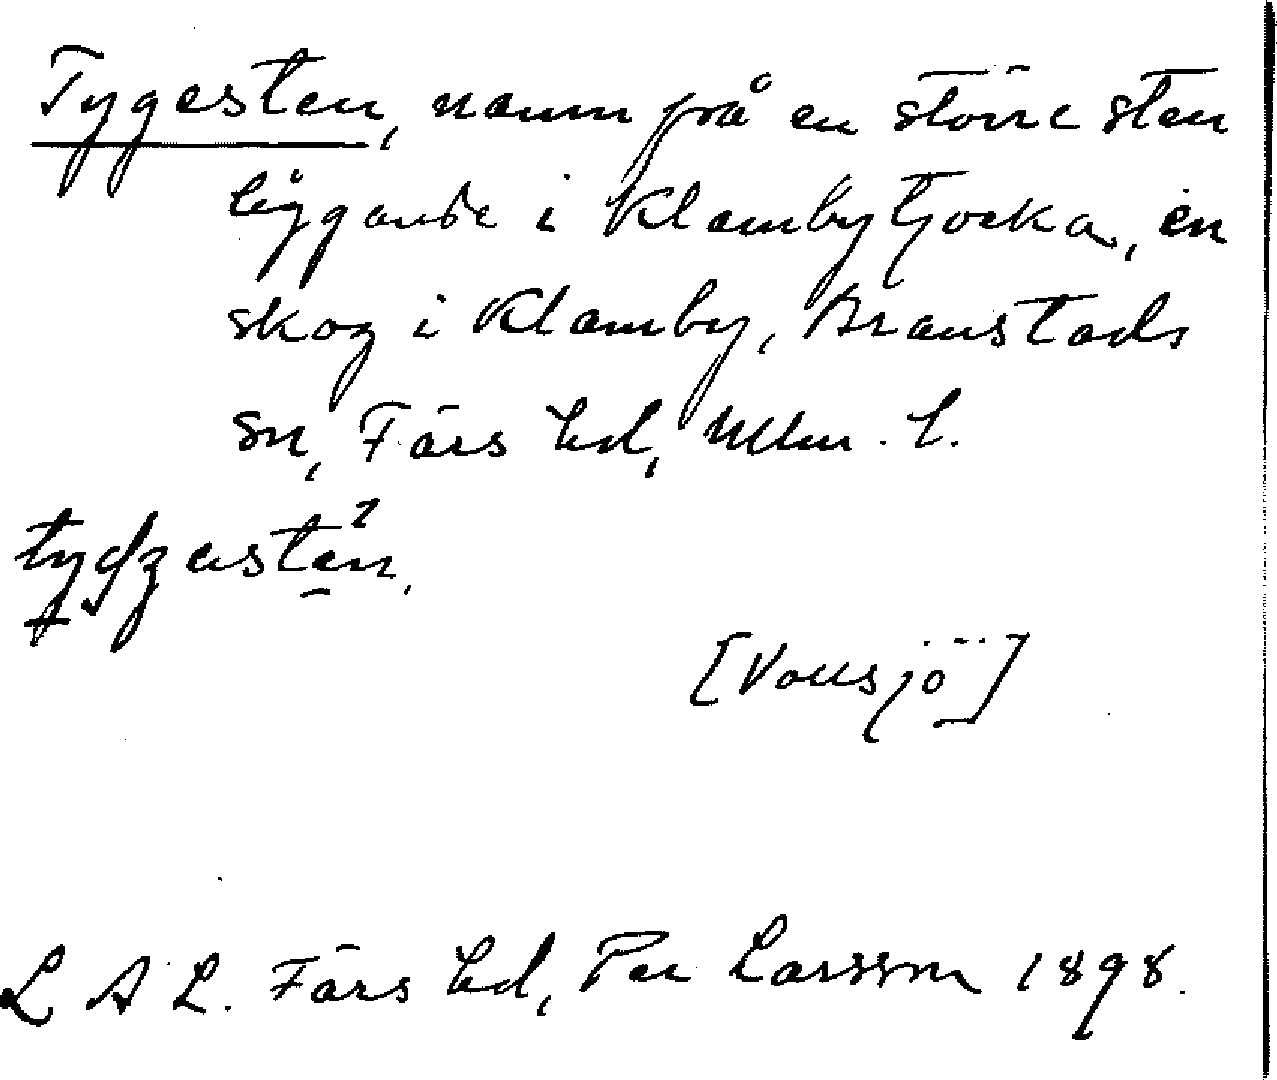 Tygesten, namn på en större sten
liggande i Klambytjocka, en
skog i Klamby, Branstads
sn, Färs hd, Mlm. l.
[Vollsjö]
L A L. Färs hd, Per Larsson 1898.